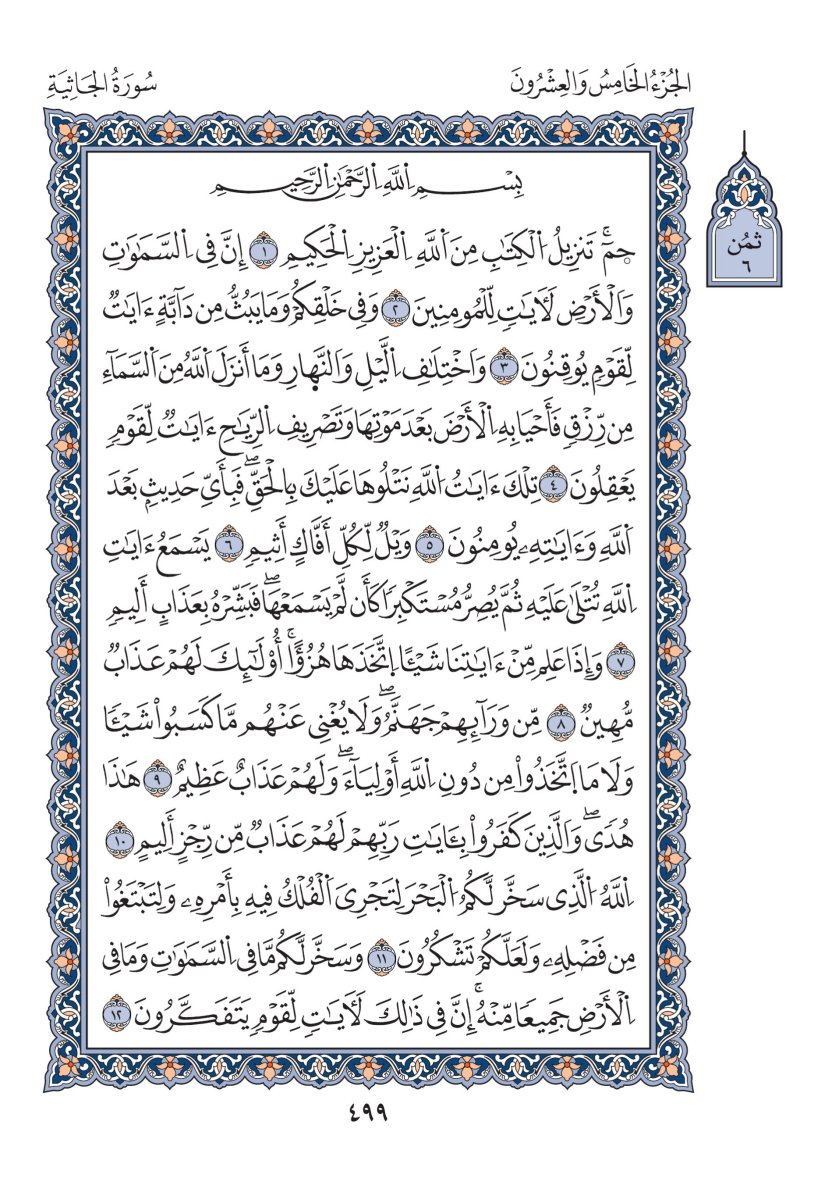 الجُزْءُ الخَامِسُ وَالعِشْرُونَ
سُورَةُ الجَاثِيَةِ
ثُمُن
٦
بِسْمِ اِللَّهِ اِلرَّحْمَٰنِ اِلرَّحِيمِ
حمٓۚ تَنزِيلُ اُلْكِتَٰبِ مِنَ اَللَّهِ اِلْعَزِيزِ اِلْحَكِيمِ ١ إِنَّ فِي اِلسَّمَٰوَٰتِ
وَالْأَرْضِ لَأٓيَٰتٖ لِّلْمُومِنِينَ ٢ وَفِي خَلْقِكُمْ وَمَا يَبُثُّ مِن دَآبَّةٍ ءَايَٰتٞ
لِّقَوْمٖ يُوقِنُونَ ٣ وَاخْتِلَٰفِ اِلَّيْلِ وَالنَّهٰارِ وَمَا أَنزَلَ اَللَّهُ مِنَ اَلسَّمَآءِ
مِن رِّزْقٖ فَأَحْيَا بِهِ اِلْأَرْضَ بَعْدَ مَوْتِهَا وَتَصْرِيفِ اِلرِّيَٰحِ ءَايَٰتٞ لِّقَوْمٖ
يَعْقِلُونَ ٤ تِلْكَ ءَايَٰتُ اُللَّهِ نَتْلُوهَا عَلَيْكَ بِالْحَقِّۖ فَبِأَيِّ حَدِيثِۭ بَعْدَ
اَللَّهِ وَءَايَٰتِهِۦ يُومِنُونَ ٥ وَيْلٞ لِّكُلِّ أَفَّاكٍ أَثِيمٖ ٦ يَسْمَعُ ءَايَٰتِ
اِللَّهِ تُتْلَىٰ عَلَيْهِ ثُمَّ يُصِرُّ مُسْتَكْبِرٗا كَأَن لَّمْ يَسْمَعْهَاۖ فَبَشِّرْهُ بِعَذَابٍ أَلِيمٖ
٧ وَإِذَا عَلِم مِّنْ ءَايَٰتِنَا شَيْـًٔا اِتَّخَذَهَا هُزُؤًاۚ أُوْلَٰٓئِكَ لَهُمْ عَذَابٞ
مُّهِينٞ ٨ مِّن وَرَآئِهِمْ جَهَنَّمُۖ وَلَا يُغْنِي عَنْهُم مَّا كَسَبُواْ شَيْـٔٗا
وَلَا مَا اَتَّخَذُواْ مِن دُونِ اِللَّهِ أَوْلِيَآءَۖ وَلَهُمْ عَذَابٌ عَظِيمٌ ٩ هَٰذَا
هُدٗىۖ وَالَّذِينَ كَفَرُواْ بِـَٔايَٰتِ رَبِّهِمْ لَهُمْ عَذَابٞ مِّن رِّجْزٍ أَلِيمٍ ١٠
اِللَّهُ اُلَّذِي سَخَّر لَّكُمُ اُلْبَحْرَ لِتَجْرِيَ اَلْفُلْكُ فِيهِ بِأَمْرِهِۦ وَلِتَبْتَغُواْ
مِن فَضْلِهِۦ وَلَعَلَّكُمْ تَشْكُرُونَ ١١ وَسَخَّر لَّكُم مَّا فِي اِلسَّمَٰوَٰتِ وَمَا فِي
اِلْأَرْضِ جَمِيعٗا مِّنْهُۚ إِنَّ فِي ذَٰلِكَ لَأٓيَٰتٖ لِّقَوْمٖ يَتَفَكَّرُونَ ١٢
٤٩٩